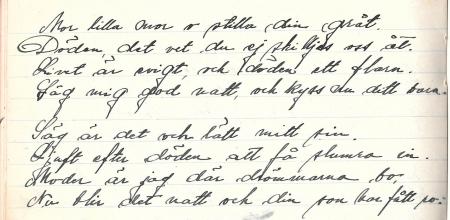 Mor lilla mor o stilla din gråt.
Döden, det vet du ej skiljer oss åt.
Livet är evigt, och döden ett flarn.
Säg mig god natt, och kyss nu ditt barn.
Säg är det och lätt mitt sin.
Ljuft efter döden att få slumra in.
Moder är jag där drömmarna bo,
Nu blir det natt och din son har fått ro.